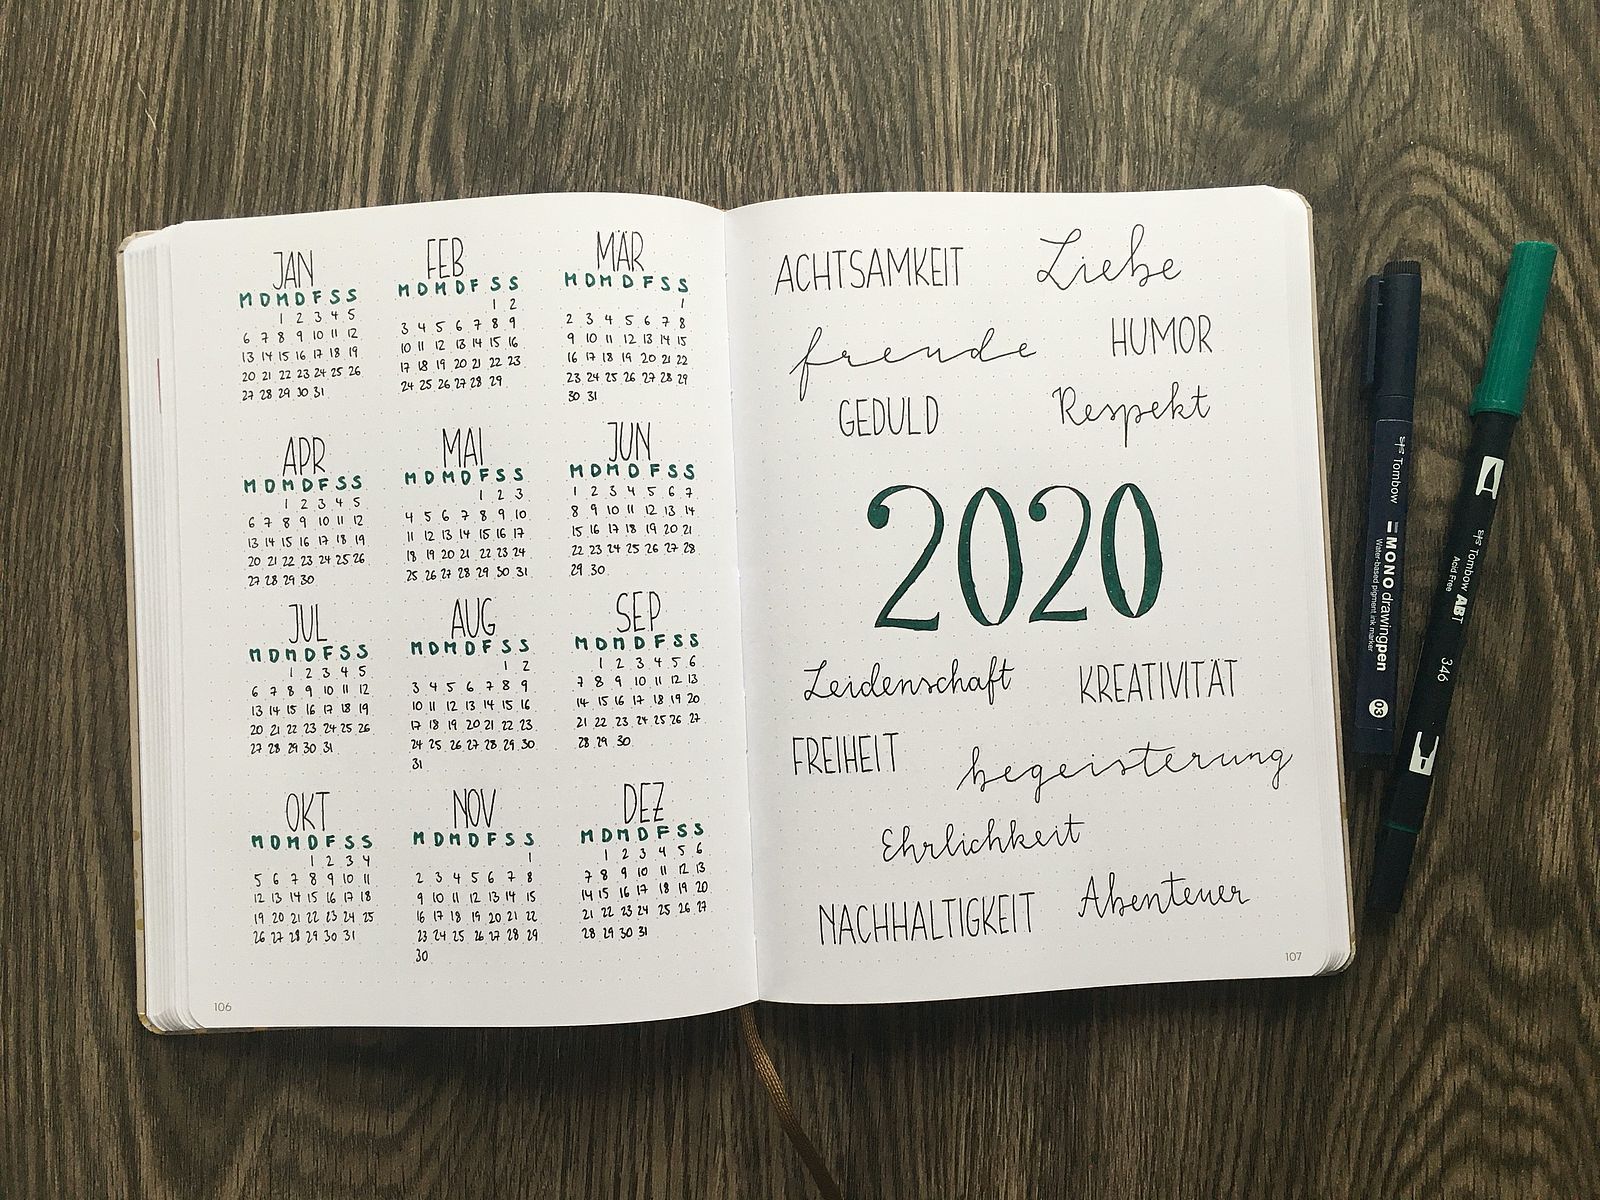 JAN
M D M D F S S
1 2 3 4 5
6 7 8 9 10 11 12
13 14 15 16 17 18 19
20 21 22 23 24 25 26
27 28 29 30 31
FEB
M D M D F S S
1 2
3 4 5 6 7 8 9
10 11 12 13 14 15 16
17 18 19 20 21 22 23
24 25 26 27 28 29
MÄR
M D M D F S S
1
2 3 4 5 6 7 8
9 10 11 12 13 14 15
16 17 18 19 20 21 22
23 24 25 26 27 28 29
30 31
APR
M D M D F S S
1 2 3 4 5
6 7 8 9 10 11 12
13 14 15 16 17 18 19
20 21 22 23 24 25 26
27 28 29 30
MAI
M D M D F S S
1 2 3
4 5 6 7 8 9 10
11 12 13 14 15 16 17
18 19 20 21 22 23 24
25 26 27 28 29 30 31
JUN
M D M D F S S
1 2 3 4 5 6 7
8 9 10 11 12 13 14
15 16 17 18 19 20 21
22 23 24 25 26 27 28
29 30
JUL
M D M D F S S
1 2 3 4 5
6 7 8 9 10 11 12
13 14 15 16 17 18 19
20 21 22 23 24 25 26
27 28 29 30 31
AUG
M D M D F S S
1 2
3 4 5 6 7 8 9
10 11 12 13 14 15 16
17 18 19 20 21 22 23
24 25 26 27 28 29 30
31
SEP
M D M D F S S
1 2 3 4 5 6
7 8 9 10 11 12 13
14 15 16 17 18 19 20
21 22 23 24 25 26 27
28 29 30
OKT
M D M D F S S
1 2 3 4
5 6 7 8 9 10 11
12 13 14 15 16 17 18
19 20 21 22 23 24 25
26 27 28 29 30 31
NOV
M D M D F S S
1
2 3 4 5 6 7 8
9 10 11 12 13 14 15
16 17 18 19 20 21 22
23 24 25 26 27 28 29
30
DEZ
M D M D F S S
1 2 3 4 5 6
7 8 9 10 11 12 13
14 15 16 17 18 19 20
21 22 23 24 25 26 27
28 29 30 31
106
ACHTSAMKEIT Liebe
freude HUMOR
GEDULD Respekt
2020
Leidenschaft KREATIVITÄT
FREIHEIT begeisterung
Ehrlichkeit
NACHHALTIGKEIT Abenteuer
107
Tombow MONO drawingpen 03
Water-based pigment ink marker
Tombow ABT 346
Acid Free